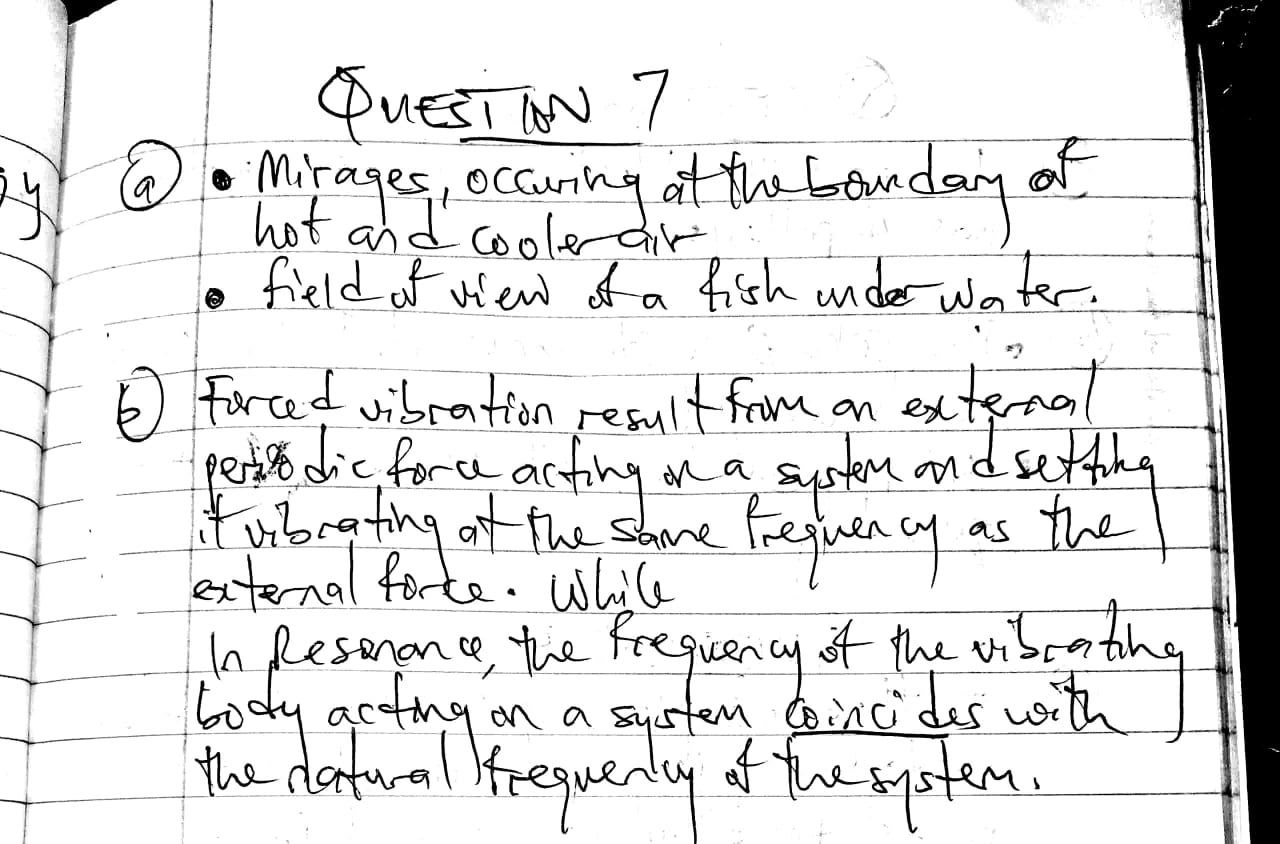 QUESTION 7
(a) • Mirages, occuring at the boundary of
hot and cooler air
• field of view of a fish under water.
(b) Forced vibration result from an external
periodic force acting on a system and setting
it vibrating at the same frequency as the
external force. While
In Resonance, the frequency of the vibrating
body acting on a system coincides with
the natural frequency of the system.